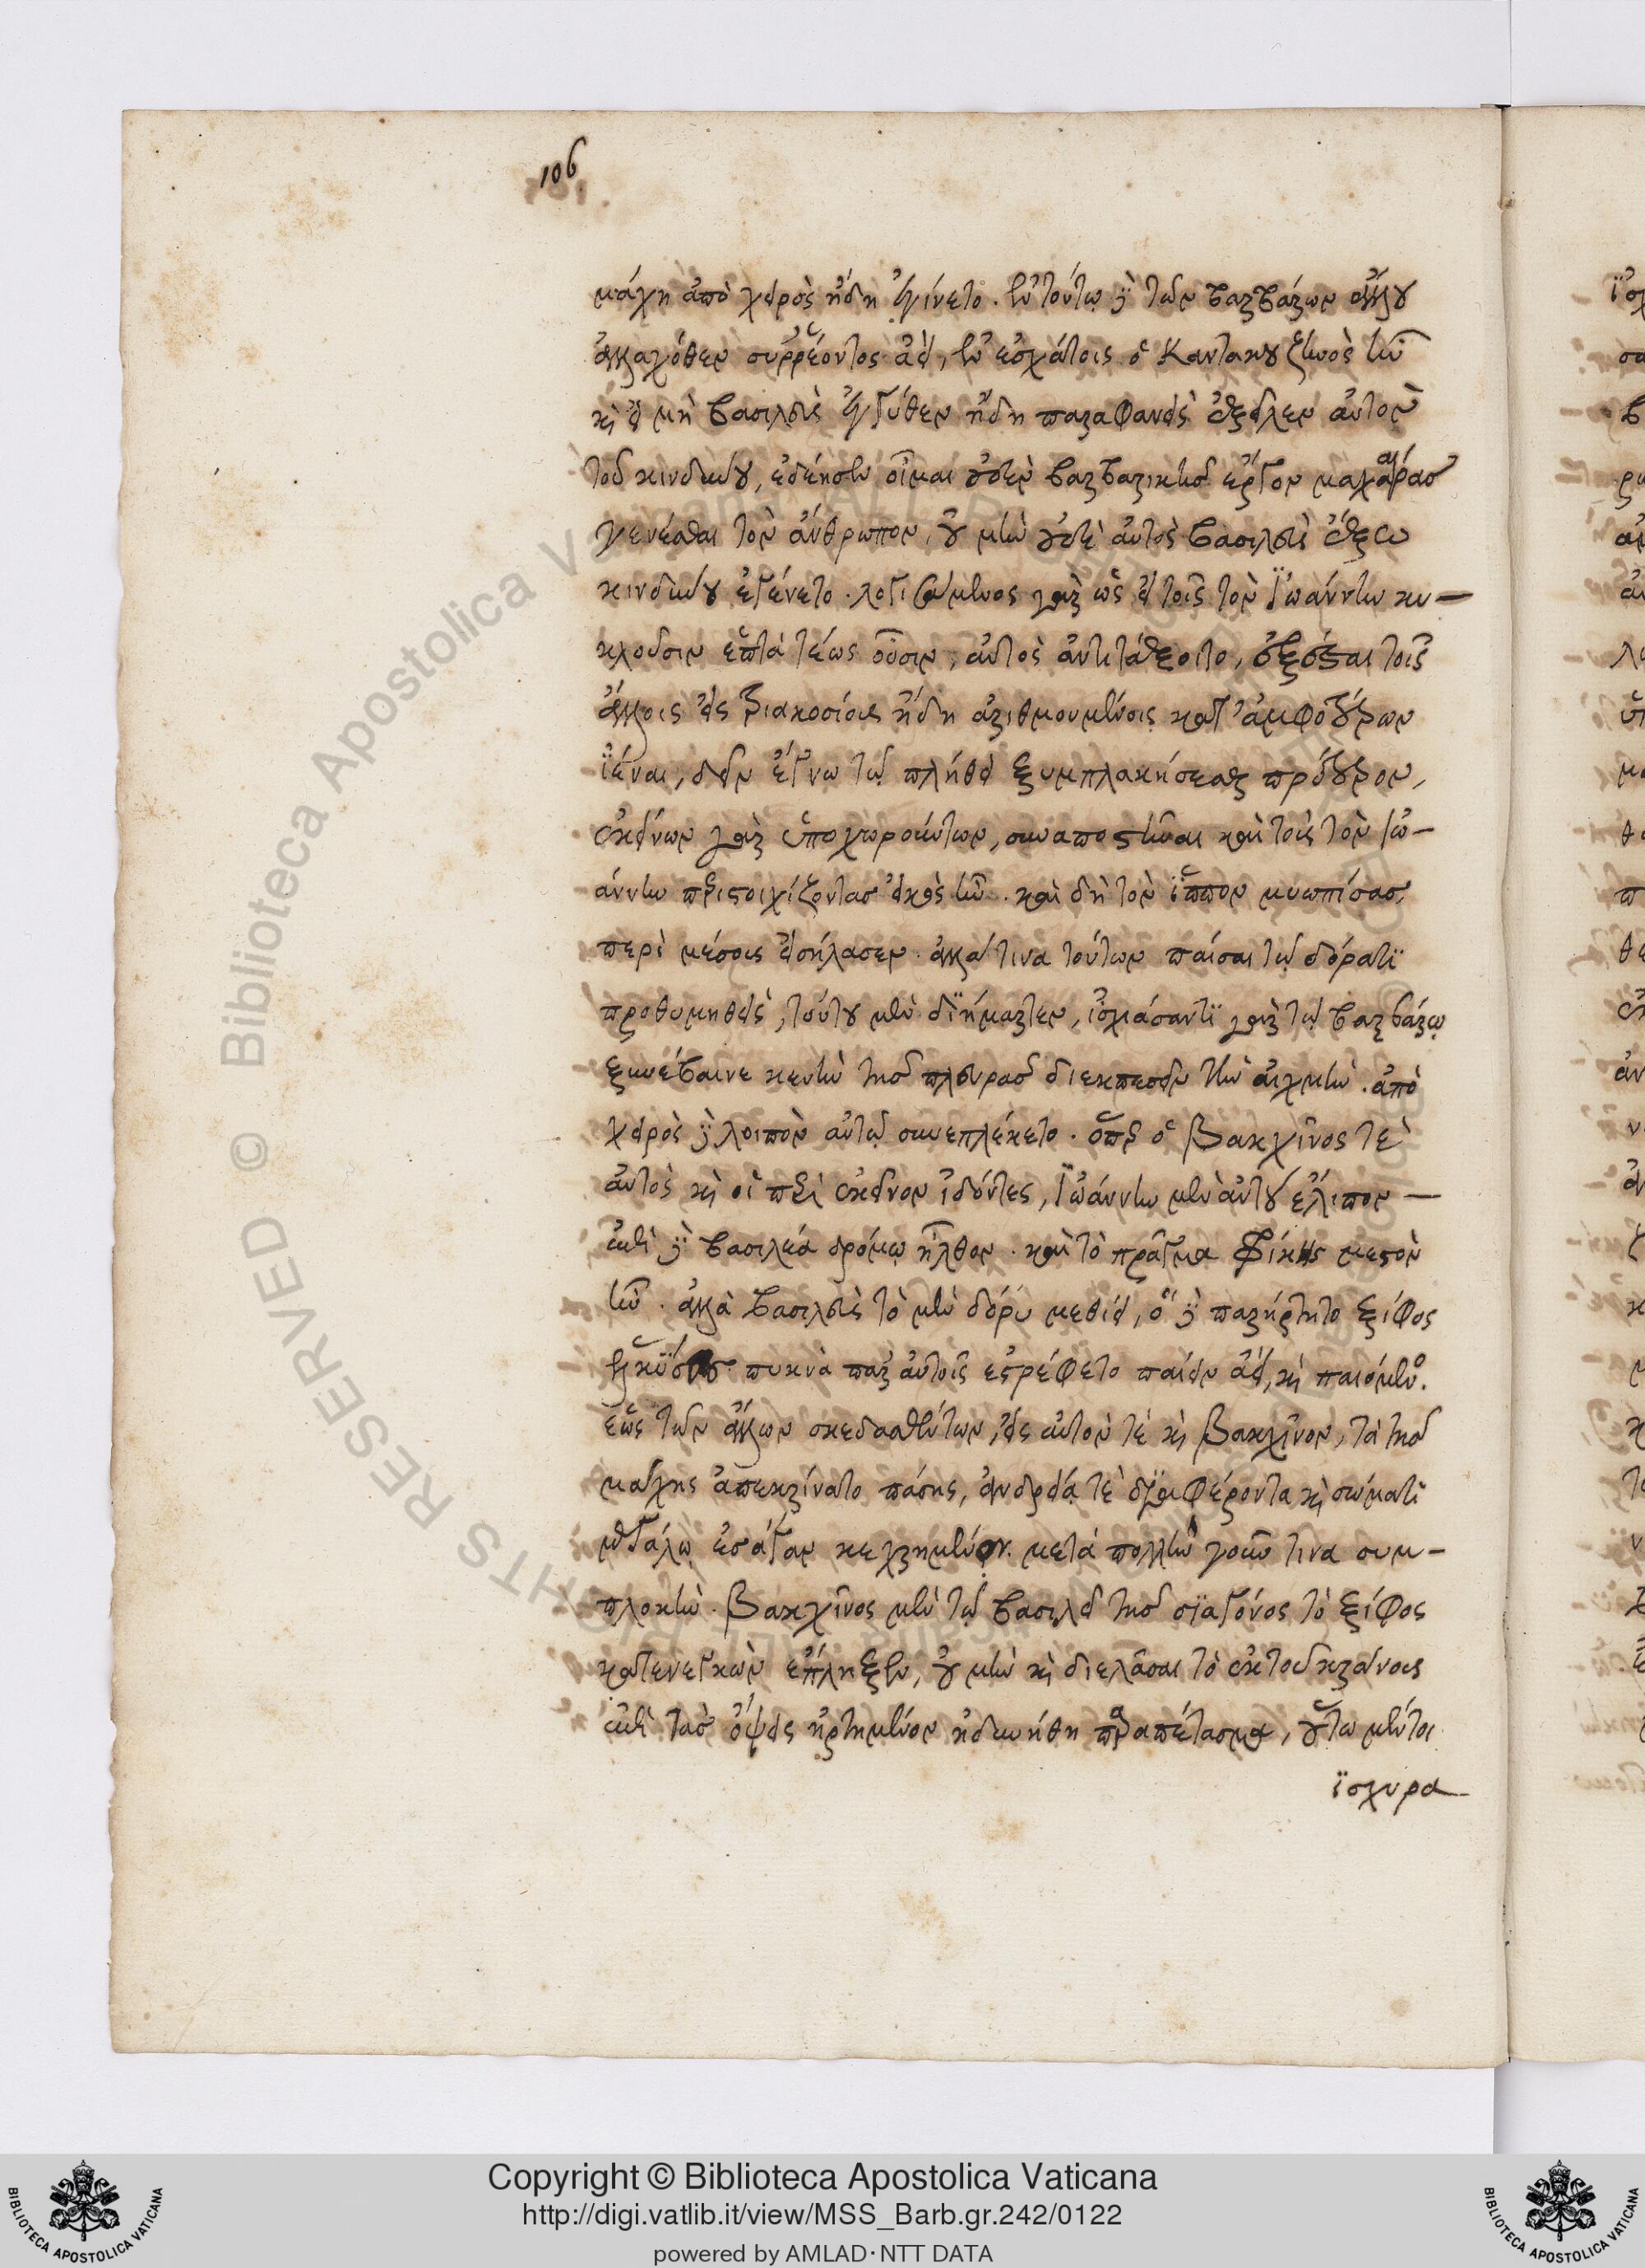 106
μάχη ἀπὸ χειρὸς ἤδη ἐγίνετο. ἐν τούτῳ δὲ τῶν βαρβάρων ἄλλου
ἀλλαχόθεν συῤῥέοντος ἀεὶ, ἐν ἐσχάτοις ὁ Καντακουζηνὸς ἦν
καὶ εἰ μὴ βασιλεὺς ἐγγύθεν ἤδη παραφανεὶς ἐξεῖλεν αὐτὸν
τοῦ κινδύνου, ἐδέησεν οἶμαι οὐδὲν βαρβαρικῆς ἔργον μαχαίρας
γενέσθαι τὸν ἄνθρωπον, οὐ μὴν οὐδὲ αὐτὸς βασιλεὺς ἔξω
κινδύνου ἐγένετο. λογισάμενος γὰρ ὡς εἰ τοῖς τὸν Ἰωάννην κυ-
κλοῦσιν ἑπτά τέως οὖσιν, αὐτὸς ἀντιτάξοιτο,
ἄλλοις εἰς τριακοσίοις ἤδη ἀριθμουμένοις κατ' ἀμφοτέρων
ἰέναι, δεῖν ἔγνω τῷ πλήθει ξυμπλακήσεσθαι πρότερον,
ἐκείνων γὰρ ὑποχωρούντων, συναποστῆναι καὶ τοὺς τὸν Ἰω-
άννην περιστοιχίζοντας εἰκὸς ἦν. καὶ δὴ τὸν ἵππον μυωπίσας
περὶ μέσους εἰσήλασεν. ἀλλά τινα τούτων παίσαι τῷ δόρατι
προθυμηθεὶς, τούτου μὲν διήμαρτεν, ἰσχιάσαντι γὰρ τῷ βαρβάρῳ
ξυνέβαινε κενὴν τῆς πλευρᾶς διεκπεσεῖν τὴν αἰχμὴν. ἀπὸ
χειρὸς δὲ λοιπὸν αὐτῷ συνεπλέκετο. ὅπερ ὁ Βακχῖνος τὲ
αὐτὸς καὶ οἱ περὶ ἐκεῖνον ἰδόντες, Ἰωάννην μὲν αὐτοῦ ἔλιπον
ἐπὶ δὲ βασιλέα δρόμῳ ἦλθον. καὶ τὸ πρᾶγμα φρίκης μεστὸν
ἦν. ἀλλὰ βασιλεὺς τὸ μὲν δόρυ μεθίει, ὃ δὲ παρήρτητο ξίφος
ἑλκύσας πυκνὰ παρ' αὐτοῖς ἐστρέφετο παίων ἀεὶ, καὶ παιόμενος.
ἕως τῶν ἄλλων σκεδασθέντων, εἰς αὐτὸν τὲ καὶ Βακχῖνον, τὰ τῆς
μάχης ἀπεκρίνατο πάσης, ἀνδρείᾳ τὲ διαφέροντα καὶ σώματι
μεγάλῳ ἐσάγαν κεχρημένον. μετὰ πολλὴν γοῦν τινα συμ-
πλοκὴν. Βακχῖνος μὲν τῷ βασιλεῖ τῆς σιαγόνος τὸ ξίφος
κατενεγκὼν ἔπληξεν, οὐ μὴν καὶ διελάσαι τὸ ἐκ τοῦ κράνους
ἐπὶ τὰς ὄψεις ἠρτημένον ἠδυνήθη παραπέτασμα, οὕτω μέντοι
ἰσχυρα
Copyright © Biblioteca Apostolica Vaticana
http://digi.vatlib.it/view/MSS_Barb.gr.242/0122
powered by AMLAD·NTT DATA